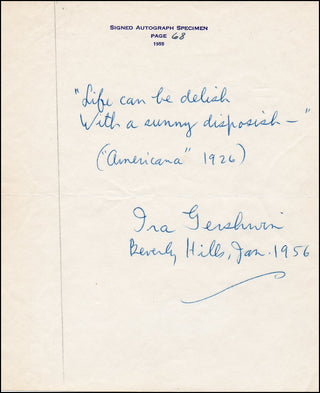 SIGNED AUTOGRAPH SPECIMEN
PAGE 68
1955
"Life can be delish
With a sunny disposish—"
("Americana" 1926)
Ira Gershwin
Beverly Hills, Jan. 1956